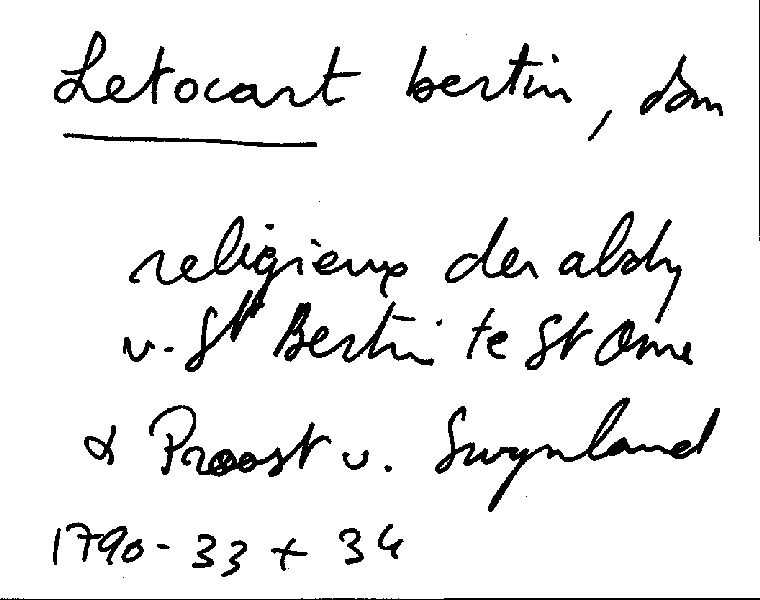 Letocart bertin, dom
religieux der abdy
v. St Bertin te St Ome
& Proost v. Swynland
1790 - 33 + 34